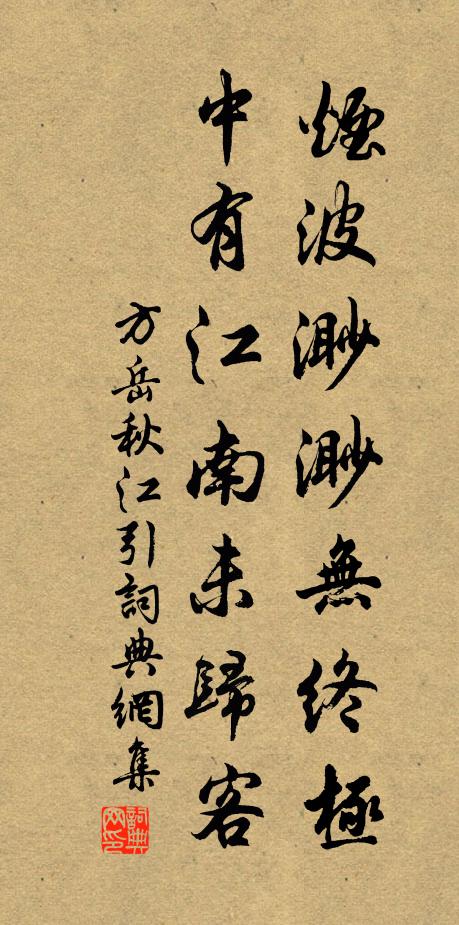 煙波渺渺無終極
中有江南未歸客
方岳秋江引詞典網集
詞典网印